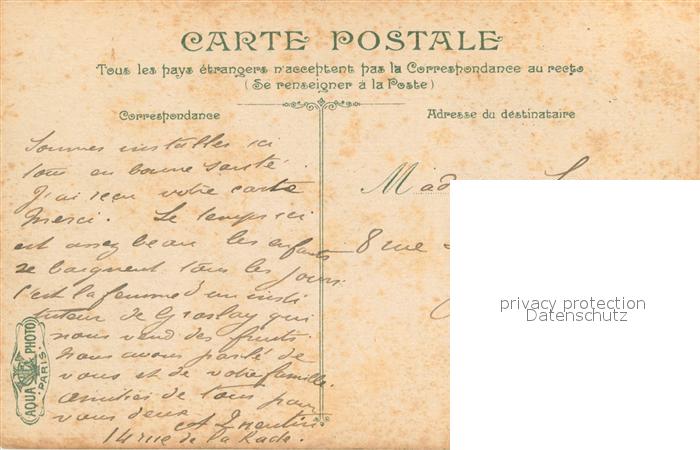 CARTE POSTALE
Tous les pays étrangers n'acceptent pas la Correspondance au recto
(Se renseigner à la Poste)
Correspondance
Adresse du destinataire
Sommes installés ici
tous en bonne santé.
J'ai reçu votre carte
Merci. Le temps ici
est assez beau les enfants
se baignent tous les jours.
C'est la femme d'un insti
tuteur de Groslay qui
nous vend des fruits.
Nous avons parlé de
vous et de votre famille.
Amitiés de tous pour
vous deux
14 rue de la Rade.
8 rue
AQUA PHOTO
PARIS
privacy protection
Datenschutz